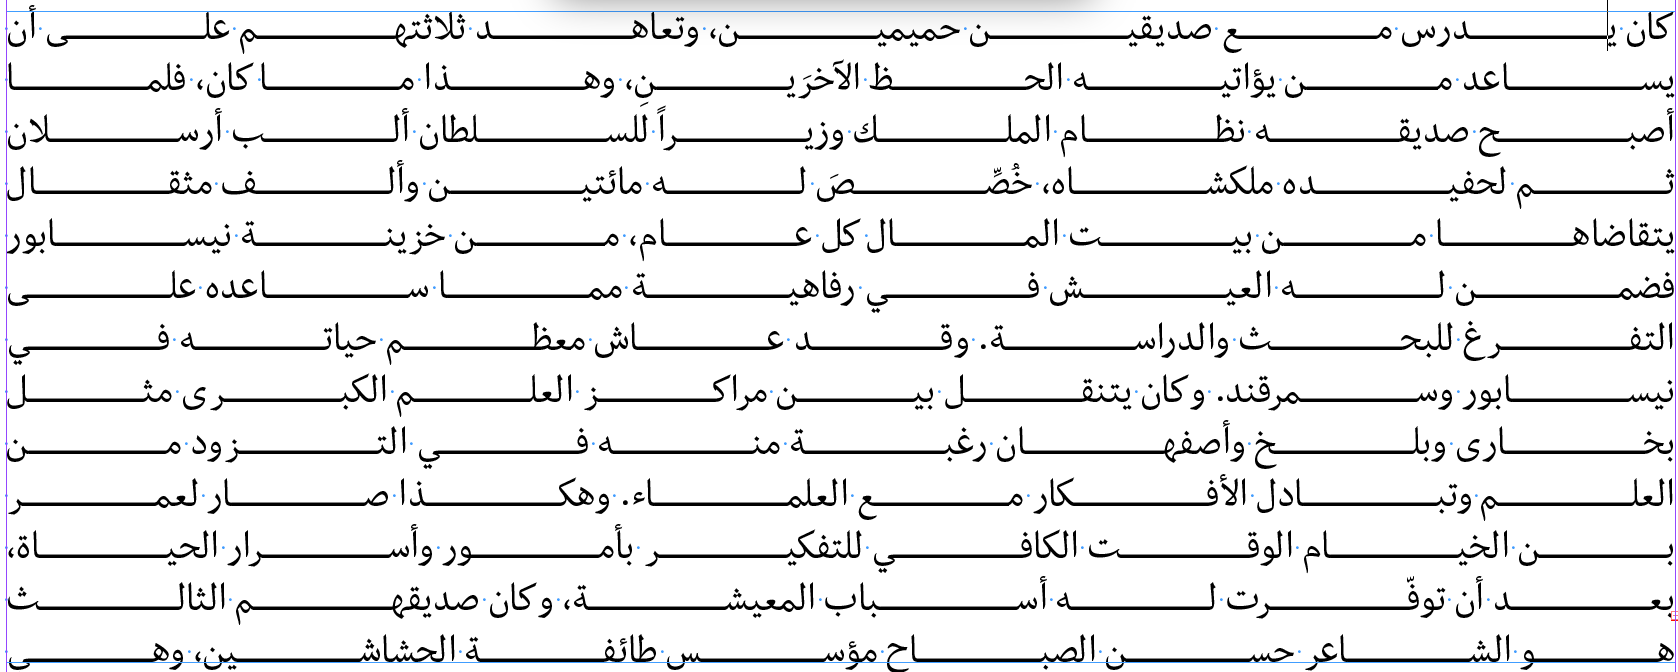 كان يدرس مع صديقين حميمين، وتعاهد ثلاثتهم على أن
يساعد من يؤاتيه الحظ الآخرَينِ، وهذا ما كان، فلما
أصبح صديقه نظام الملك وزيراً للسلطان ألب أرسلان
ثم لحفيده ملكشاه، خُصِّصَ له مائتين وألف مثقال
يتقاضاها من بيت المال كل عام، من خزينة نيسابور
فضمن له العيش في رفاهية مما ساعده على
التفرغ للبحث والدراسة. وقد عاش معظم حياته في
نيسابور وسمرقند. وكان يتنقل بين مراكز العلم الكبرى مثل
بخارى وبلخ وأصفهان رغبة منه في التزود من
العلم وتبادل الأفكار مع العلماء. وهكذا صار لعمر
بن الخيام الوقت الكافي للتفكير بأمور وأسرار الحياة،
بعد أن توفّرت له أسباب المعيشة، وكان صديقهم الثالث
هو الشاعر حسن الصباح مؤسس طائفة الحشاشين، وهي